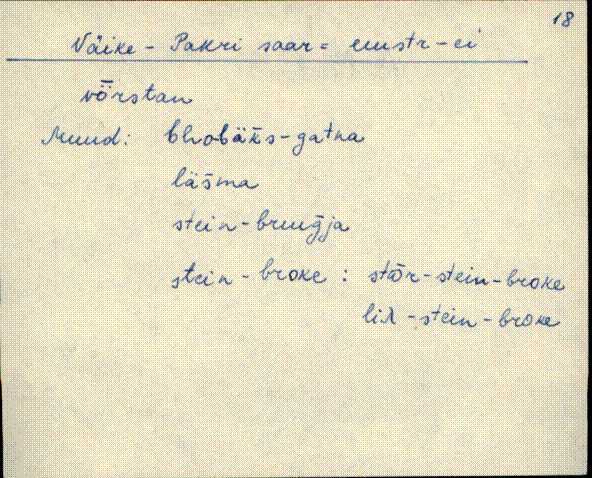 18
Väike - Pakri saar = enustr - ei
vōrstan
Muud: blrobäks-gatna
läšma
stein-bruuğja
stein - broke : stōr-stein-broke
lil - stein - broke